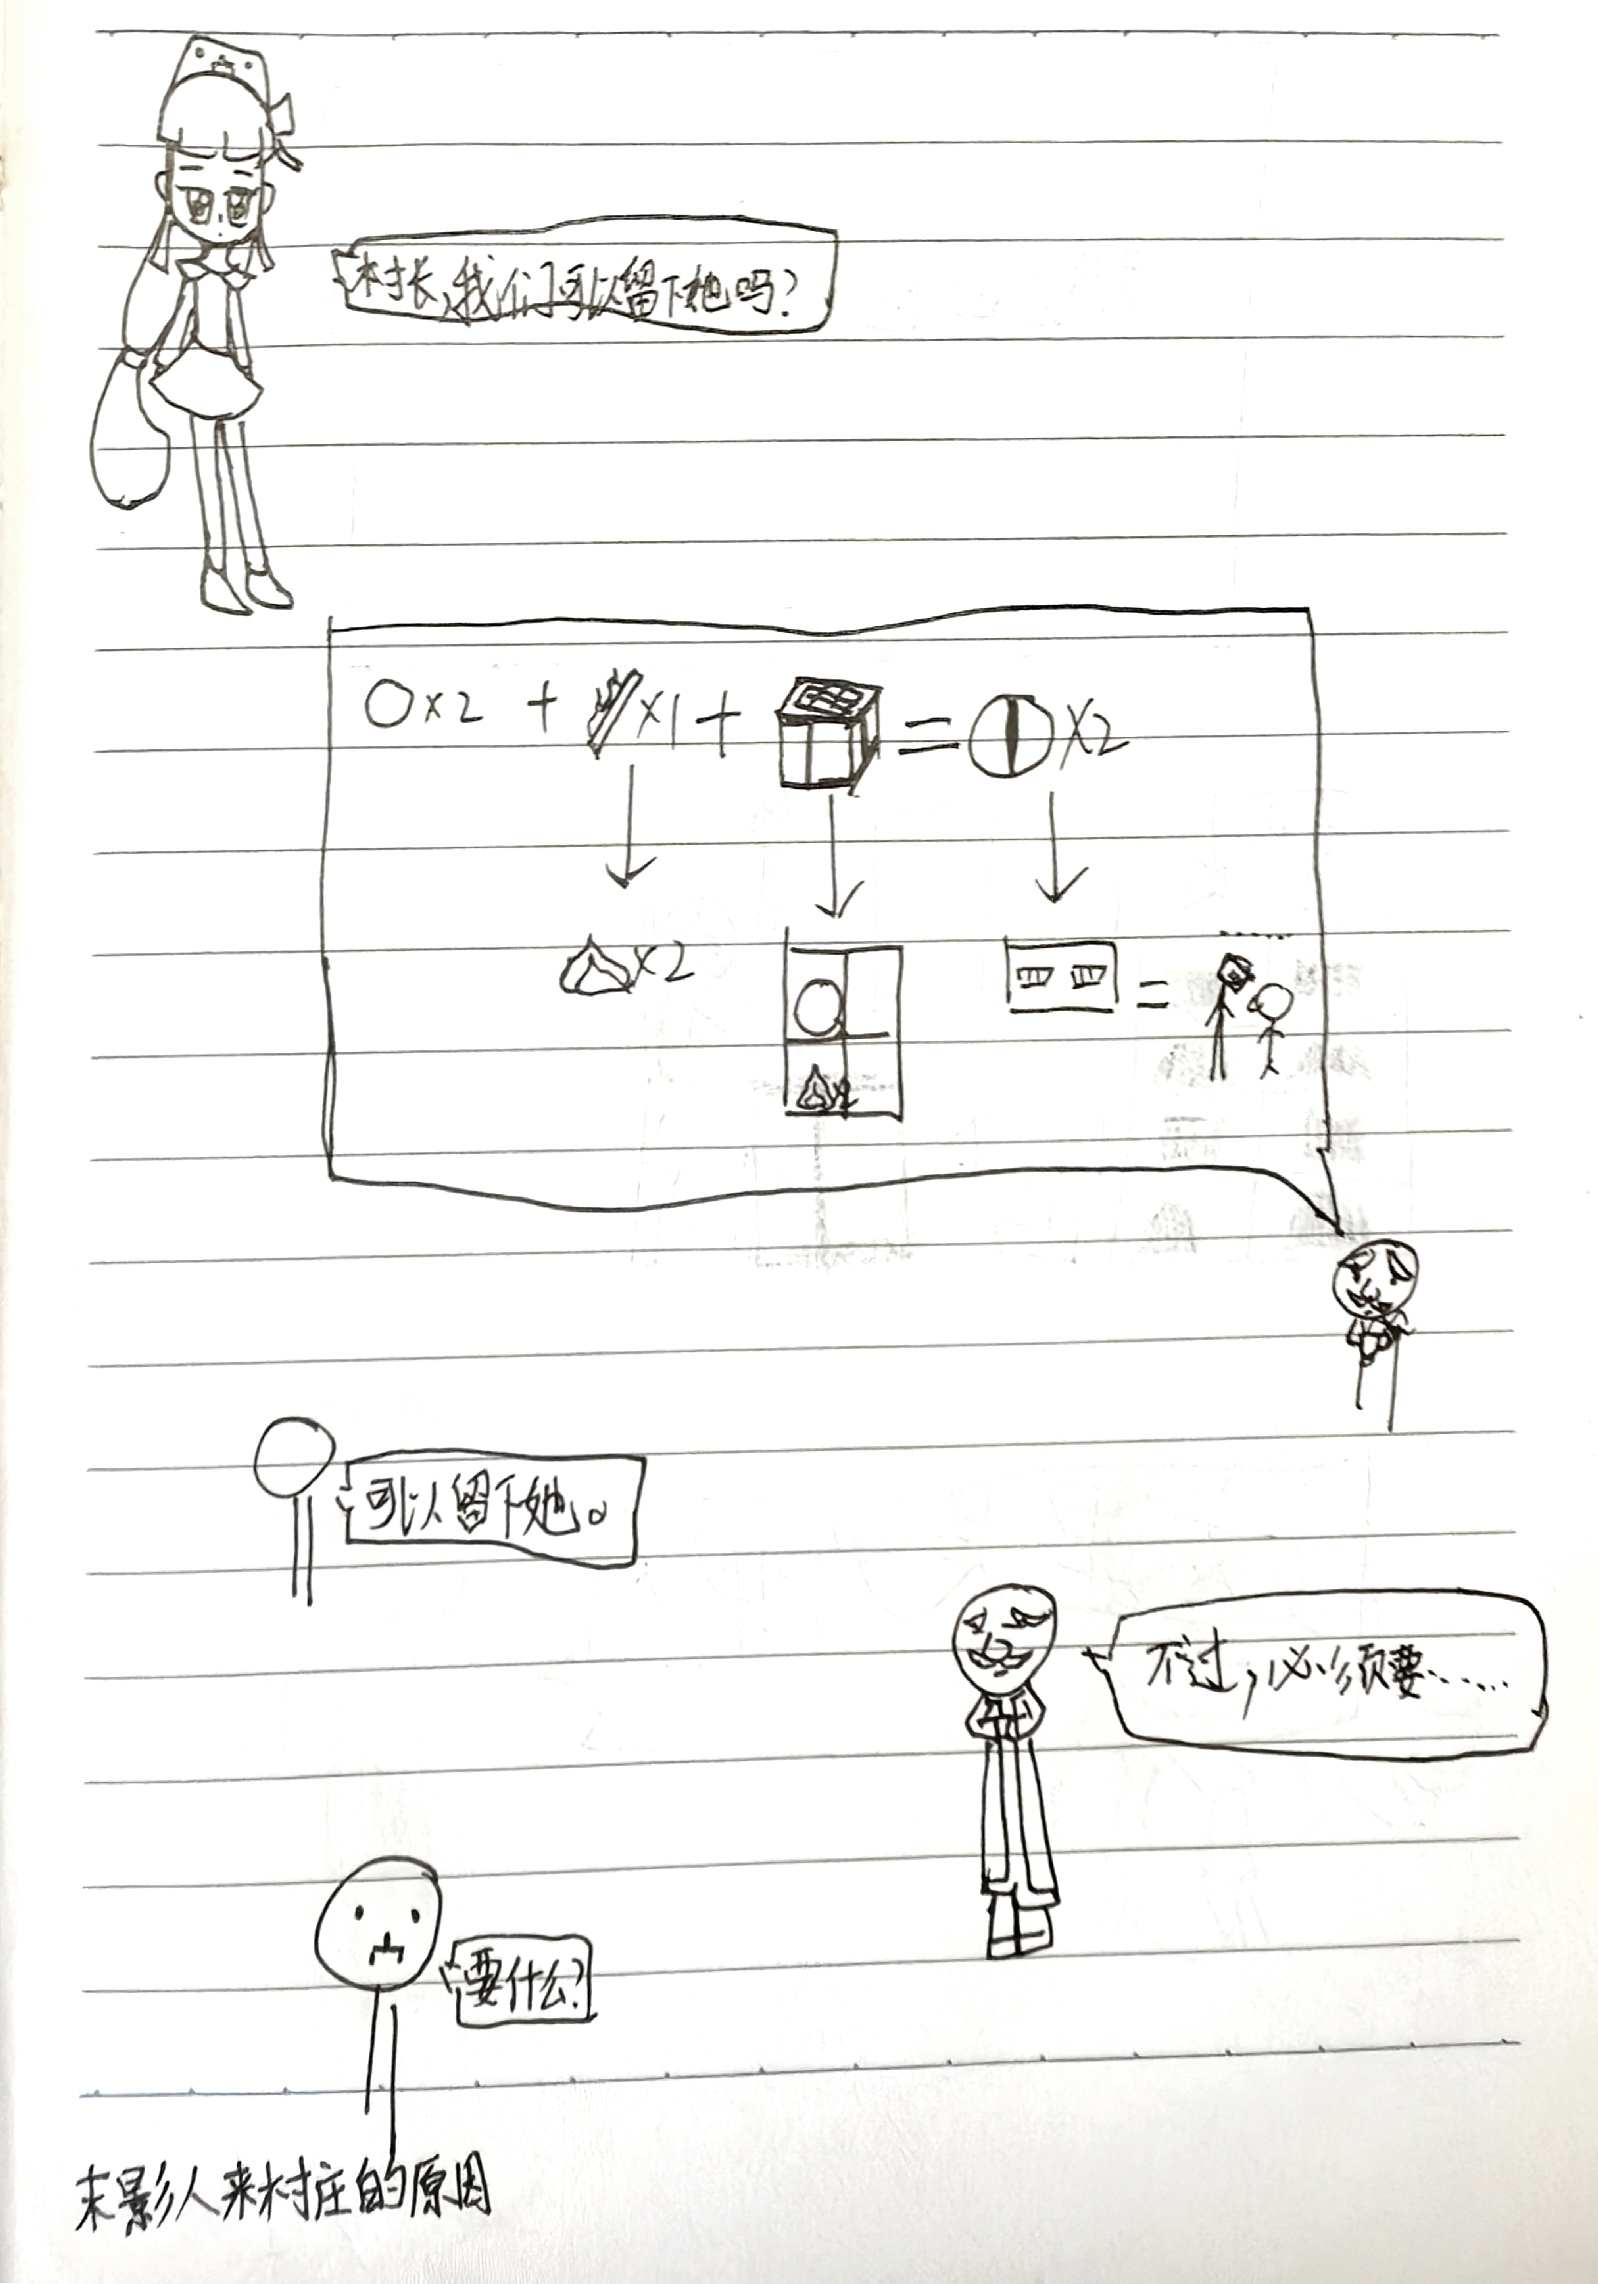 村长,我们可以留下她吗?
O×2 + ×1 + = ×2
×2
=
×2
可以留下她。
不过,必须要……
要什么?
末影人来村庄的原因